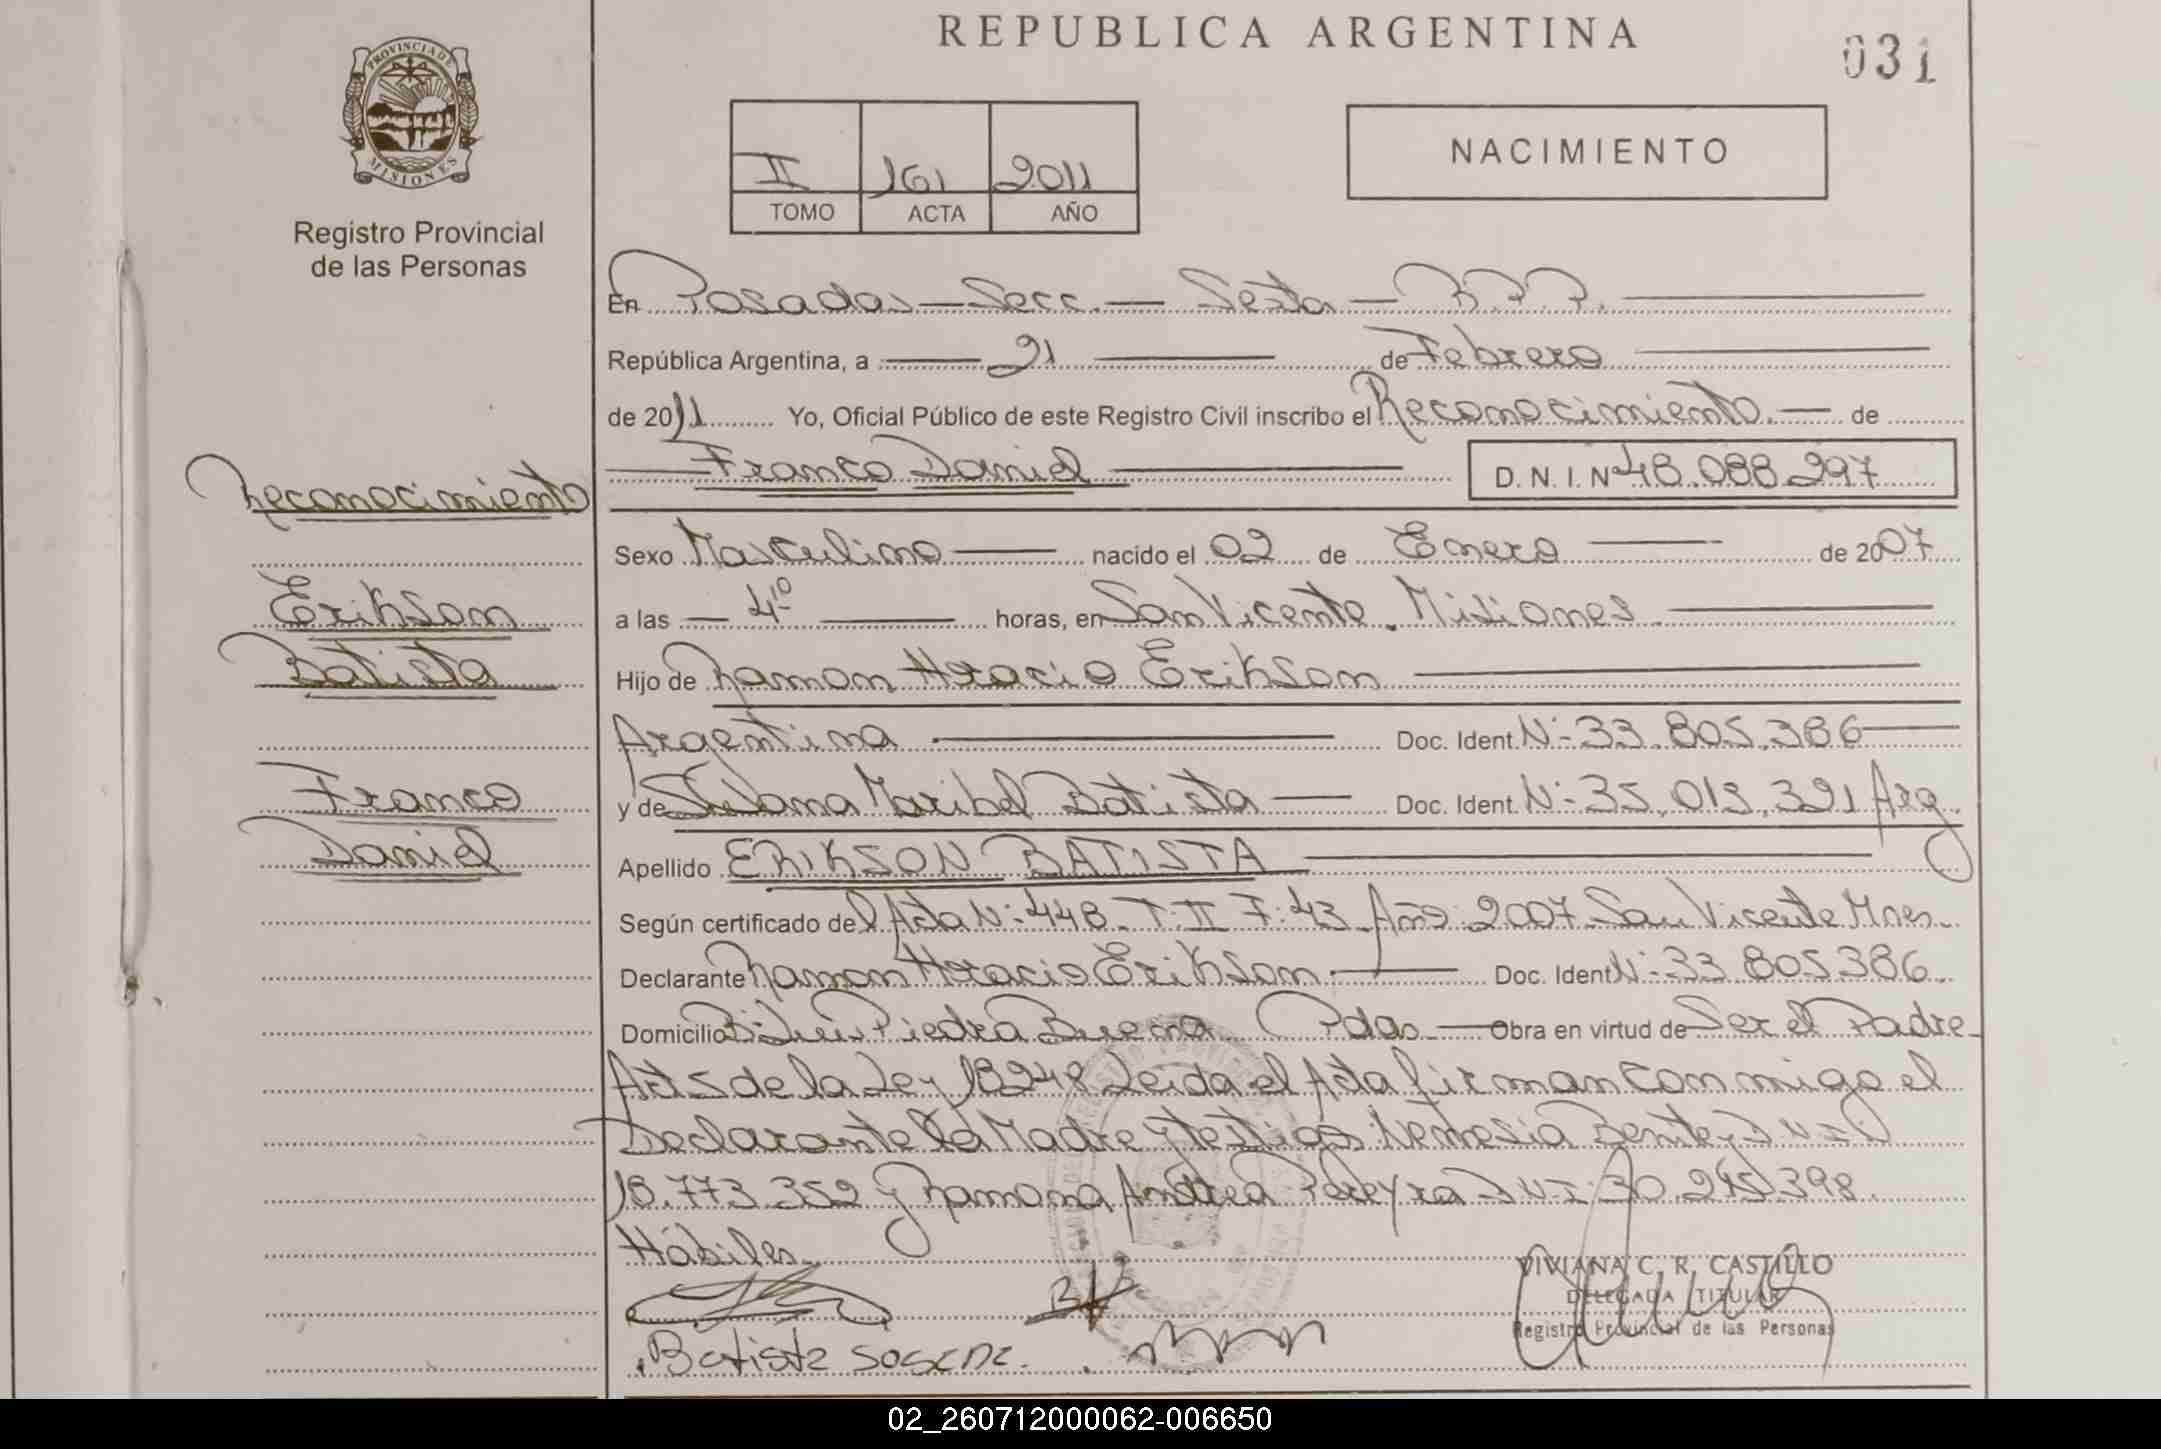 REPUBLICA ARGENTINA
031
PROVINCIA DE
MISIONES
Registro Provincial
de las Personas
II 161 2011
TOMO ACTA AÑO
NACIMIENTO
En Posadas - Secc. - Sexta - R.P.P.
República Argentina, a 21 de Febrero
de 2011 Yo, Oficial Público de este Registro Civil inscribo el Reconocimiento. de
Franco Daniel D. N. I. Nº 48.088.297
Reconocimiento
Erikson
Batista
Franco
Daniel
Sexo Masculino nacido el 02 de Enero de 2007
a las 4º horas, en San Vicente. Misiones
Hijo de Ramon Horacio Erikson
Argentina Doc. Ident. Nº 33.805.386
y de Maribel Batista Doc. Ident. Nº 35.013.321 Arg.
Apellido ERIKSON BATISTA
Según certificado del Acta Nº 448 T: II F: 43 Año: 2007 San Vicente Mnes.
Declarante Ramon Horacio Erikson Doc. Ident. Nº 33.805.386.
Domicilio Bº Luis Piedra Buena Pdas. Obra en virtud de Ser el Padre
Art 5 de la Ley 18248 Leida el Acta firman conmigo el
Declarante la Madre y testigos: Nemesia
18.773.352 y Ramona Andrea Pereyra 30.245.398
Hábiles
Batista
VIVIANA C. R. CASTILLO
DELEGADA TITULAR
Registro Provincial de las Personas
02_260712000062-006650